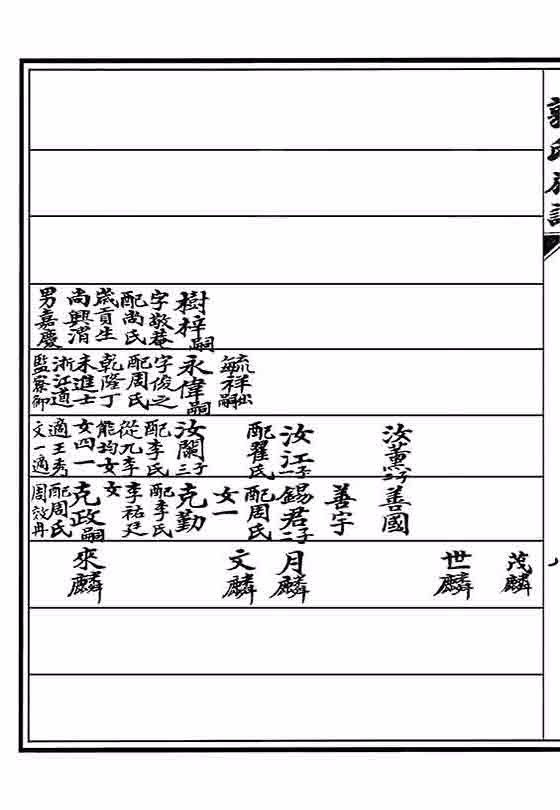 氏
樹梓嗣
字敬菴
配尚氏
歲貢生
尚興渭
男嘉慶
毓祥出嗣
永偉嗣
字俊之
配周氏
乾隆丁
未進士
浙江道
監察御
汝薰二子
汝江二子
配翟氏
汝闌三子
配李氏
從九李
能均女
女四一
適王秀
文一適
善國
善宇
錫君二子
配周氏
女一
克勤
配李氏
李祐廷
女
克政嗣
配周氏
周效冉
茂麟
世麟
月麟
文麟
來麟